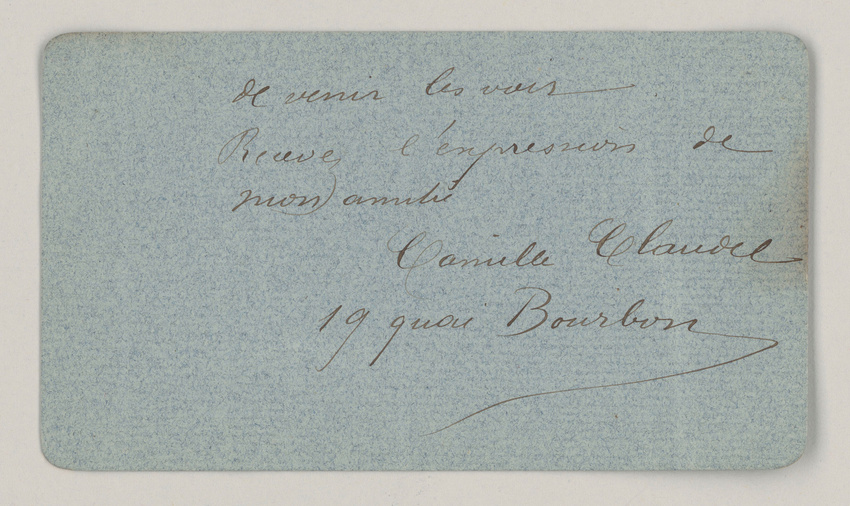 de venir les voir
Recevez l'expression de
mon amitié
Camille Claudel
19 quai Bourbon